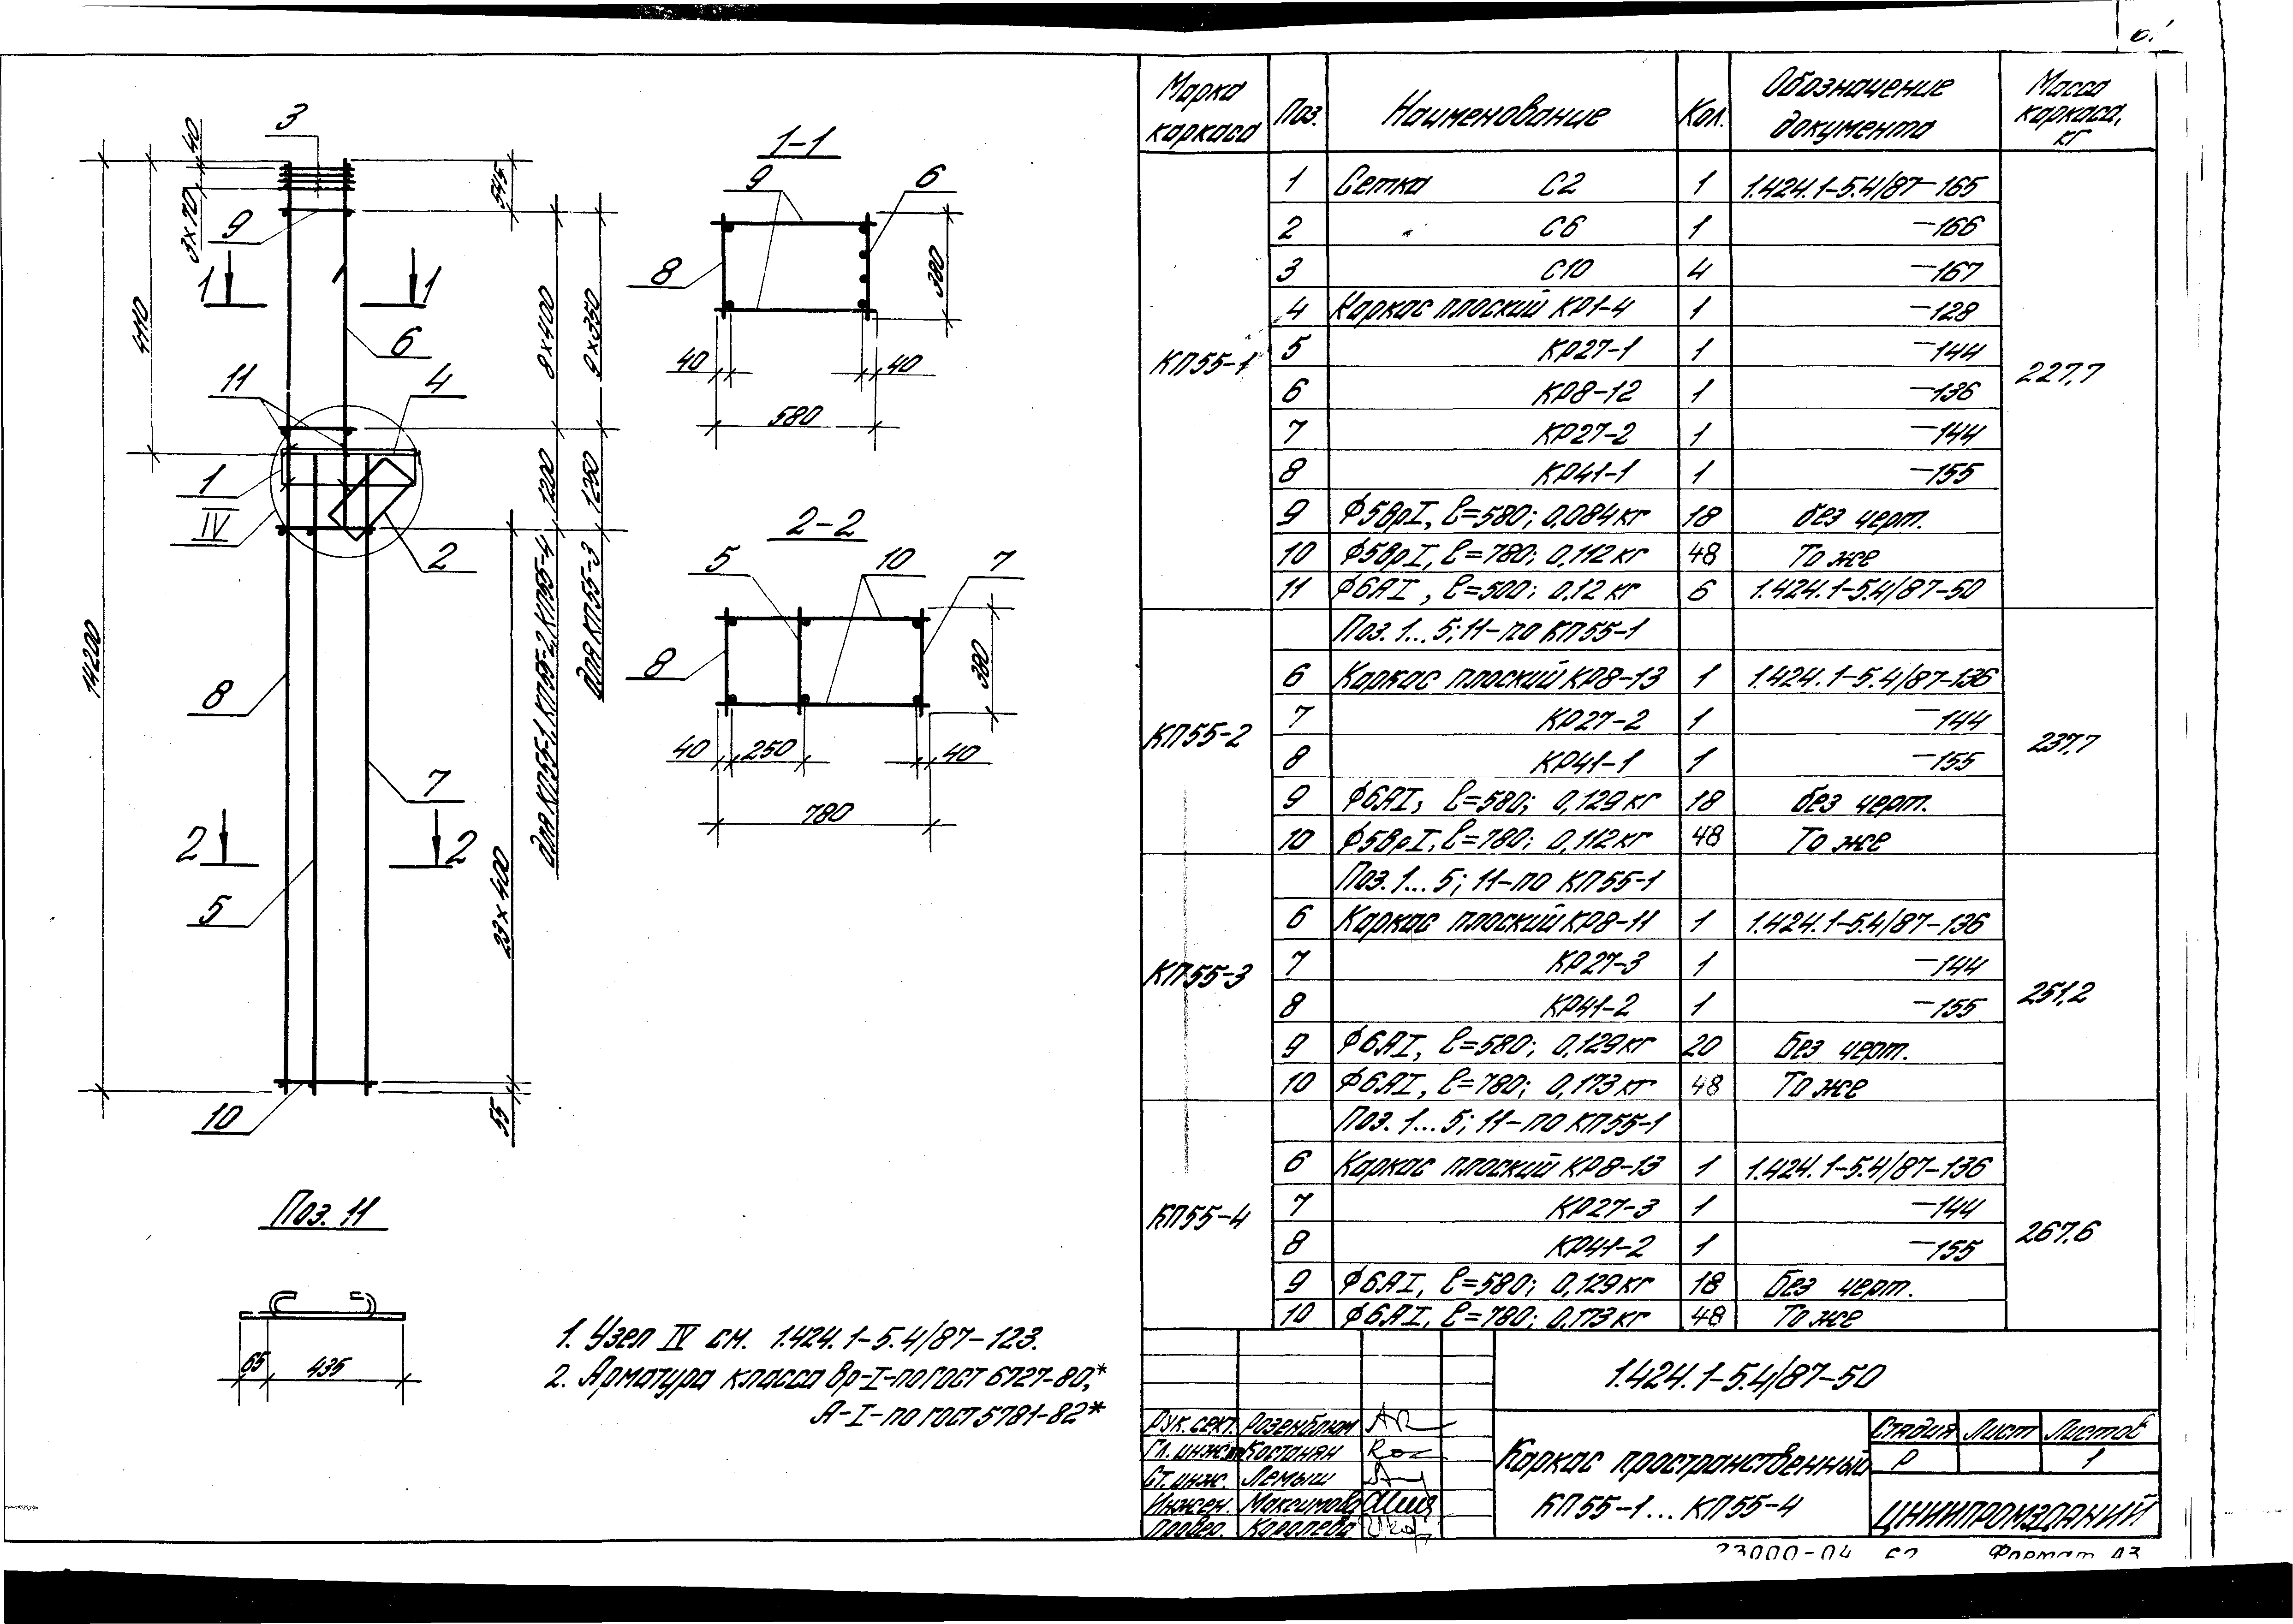 3
40
3×70
9
545
1
1
4110
6
11
4
1
IV
2
8×400
9×350
1200
1250
для КП55-1, КП55-2, КП55-4
для КП55-3
14200
8
7
2
2
5
23×400
55
10
1-1
9
6
8
380
40
40
580
2-2
5
10
7
8
380
40
250
40
780
Поз. 11
65
435
1. Узел IV см. 1.424.1-5.4/87-123.
2. Арматура класса Вр-I-по ГОСТ 6727-80,*
А-I-по ГОСТ 5781-82*
Марка каркаса Поз. Наименование Кол. Обозначение документа Масса каркаса, кг
КП55-1 227,7
1 Сетка С2 1 1.424.1-5.4/87-165
2 С6 1 -166
3 С10 4 -167
4 Каркас плоский КР1-4 1 -128
5 КР27-1 1 -144
6 КР8-12 1 -136
7 КР27-2 1 -144
8 КР41-1 1 -155
9 Ф5ВрI, ℓ=580; 0,084кг 18 без черт.
10 Ф5ВрI, ℓ=780; 0,112кг 48 То же
11 Ф6АI, ℓ=500; 0,12 кг 6 1.424.1-5.4/87-50
КП55-2 237,7
Поз. 1... 5; 11-по КП55-1
6 Каркас плоский КР8-13 1 1.424.1-5.4/87-136
7 КР27-2 1 -144
8 КР41-1 1 -155
9 Ф6АI, ℓ=580; 0,129кг 18 без черт.
10 Ф5ВрI, ℓ=780; 0,112кг 48 То же
КП55-3 251,2
Поз. 1... 5; 11-по КП55-1
6 Каркас плоский КР8-11 1 1.424.1-5.4/87-136
7 КР27-3 1 -144
8 КР41-2 1 -155
9 Ф6АI, ℓ=580; 0,129кг 20 Без черт.
10 Ф6АI, ℓ=780; 0,173кг 48 То же
КП55-4 267,6
Поз. 1... 5; 11-по КП55-1
6 Каркас плоский КР8-13 1 1.424.1-5.4/87-136
7 КР27-3 1 -144
8 КР41-2 1 -155
9 Ф6АI, ℓ=580; 0,129кг 18 Без черт.
10 Ф6АI, ℓ=780; 0,173кг 48 То же
1.424.1-5.4/87-50
Рук. сект. Розенблюм
Гл. инж. Костанян
Ст. инж. Лемыш
Инжен. Максимова
Провер. Королева
Каркас пространственный
КП55-1...КП55-4
Стадия Лист Листов
Р 1
ЦНИИПРОМЗДАНИЙ
23000-04 62 Формат А3